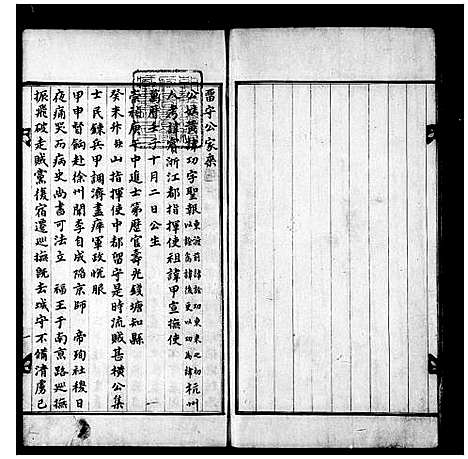 留守公家乗
公姓黃諱功字聖報
人考諱賓浙江都指揮使祖諱甲宣撫使
萬曆壬子十月二日公生
崇禎庚午中進士第歷官壽光錢塘知縣
癸未升 山指揮使中都留守是時流賊甚橫公集
士民鍊兵甲調濟盡瘁軍政悅服
甲申督餉赴徐州聞李自成陷京師 帝殉社稷日
夜痛哭而病史尚書可法立 福王于南京路巡撫
振飛破走賊黨復宿遷巡撫既去城守不備清虜已